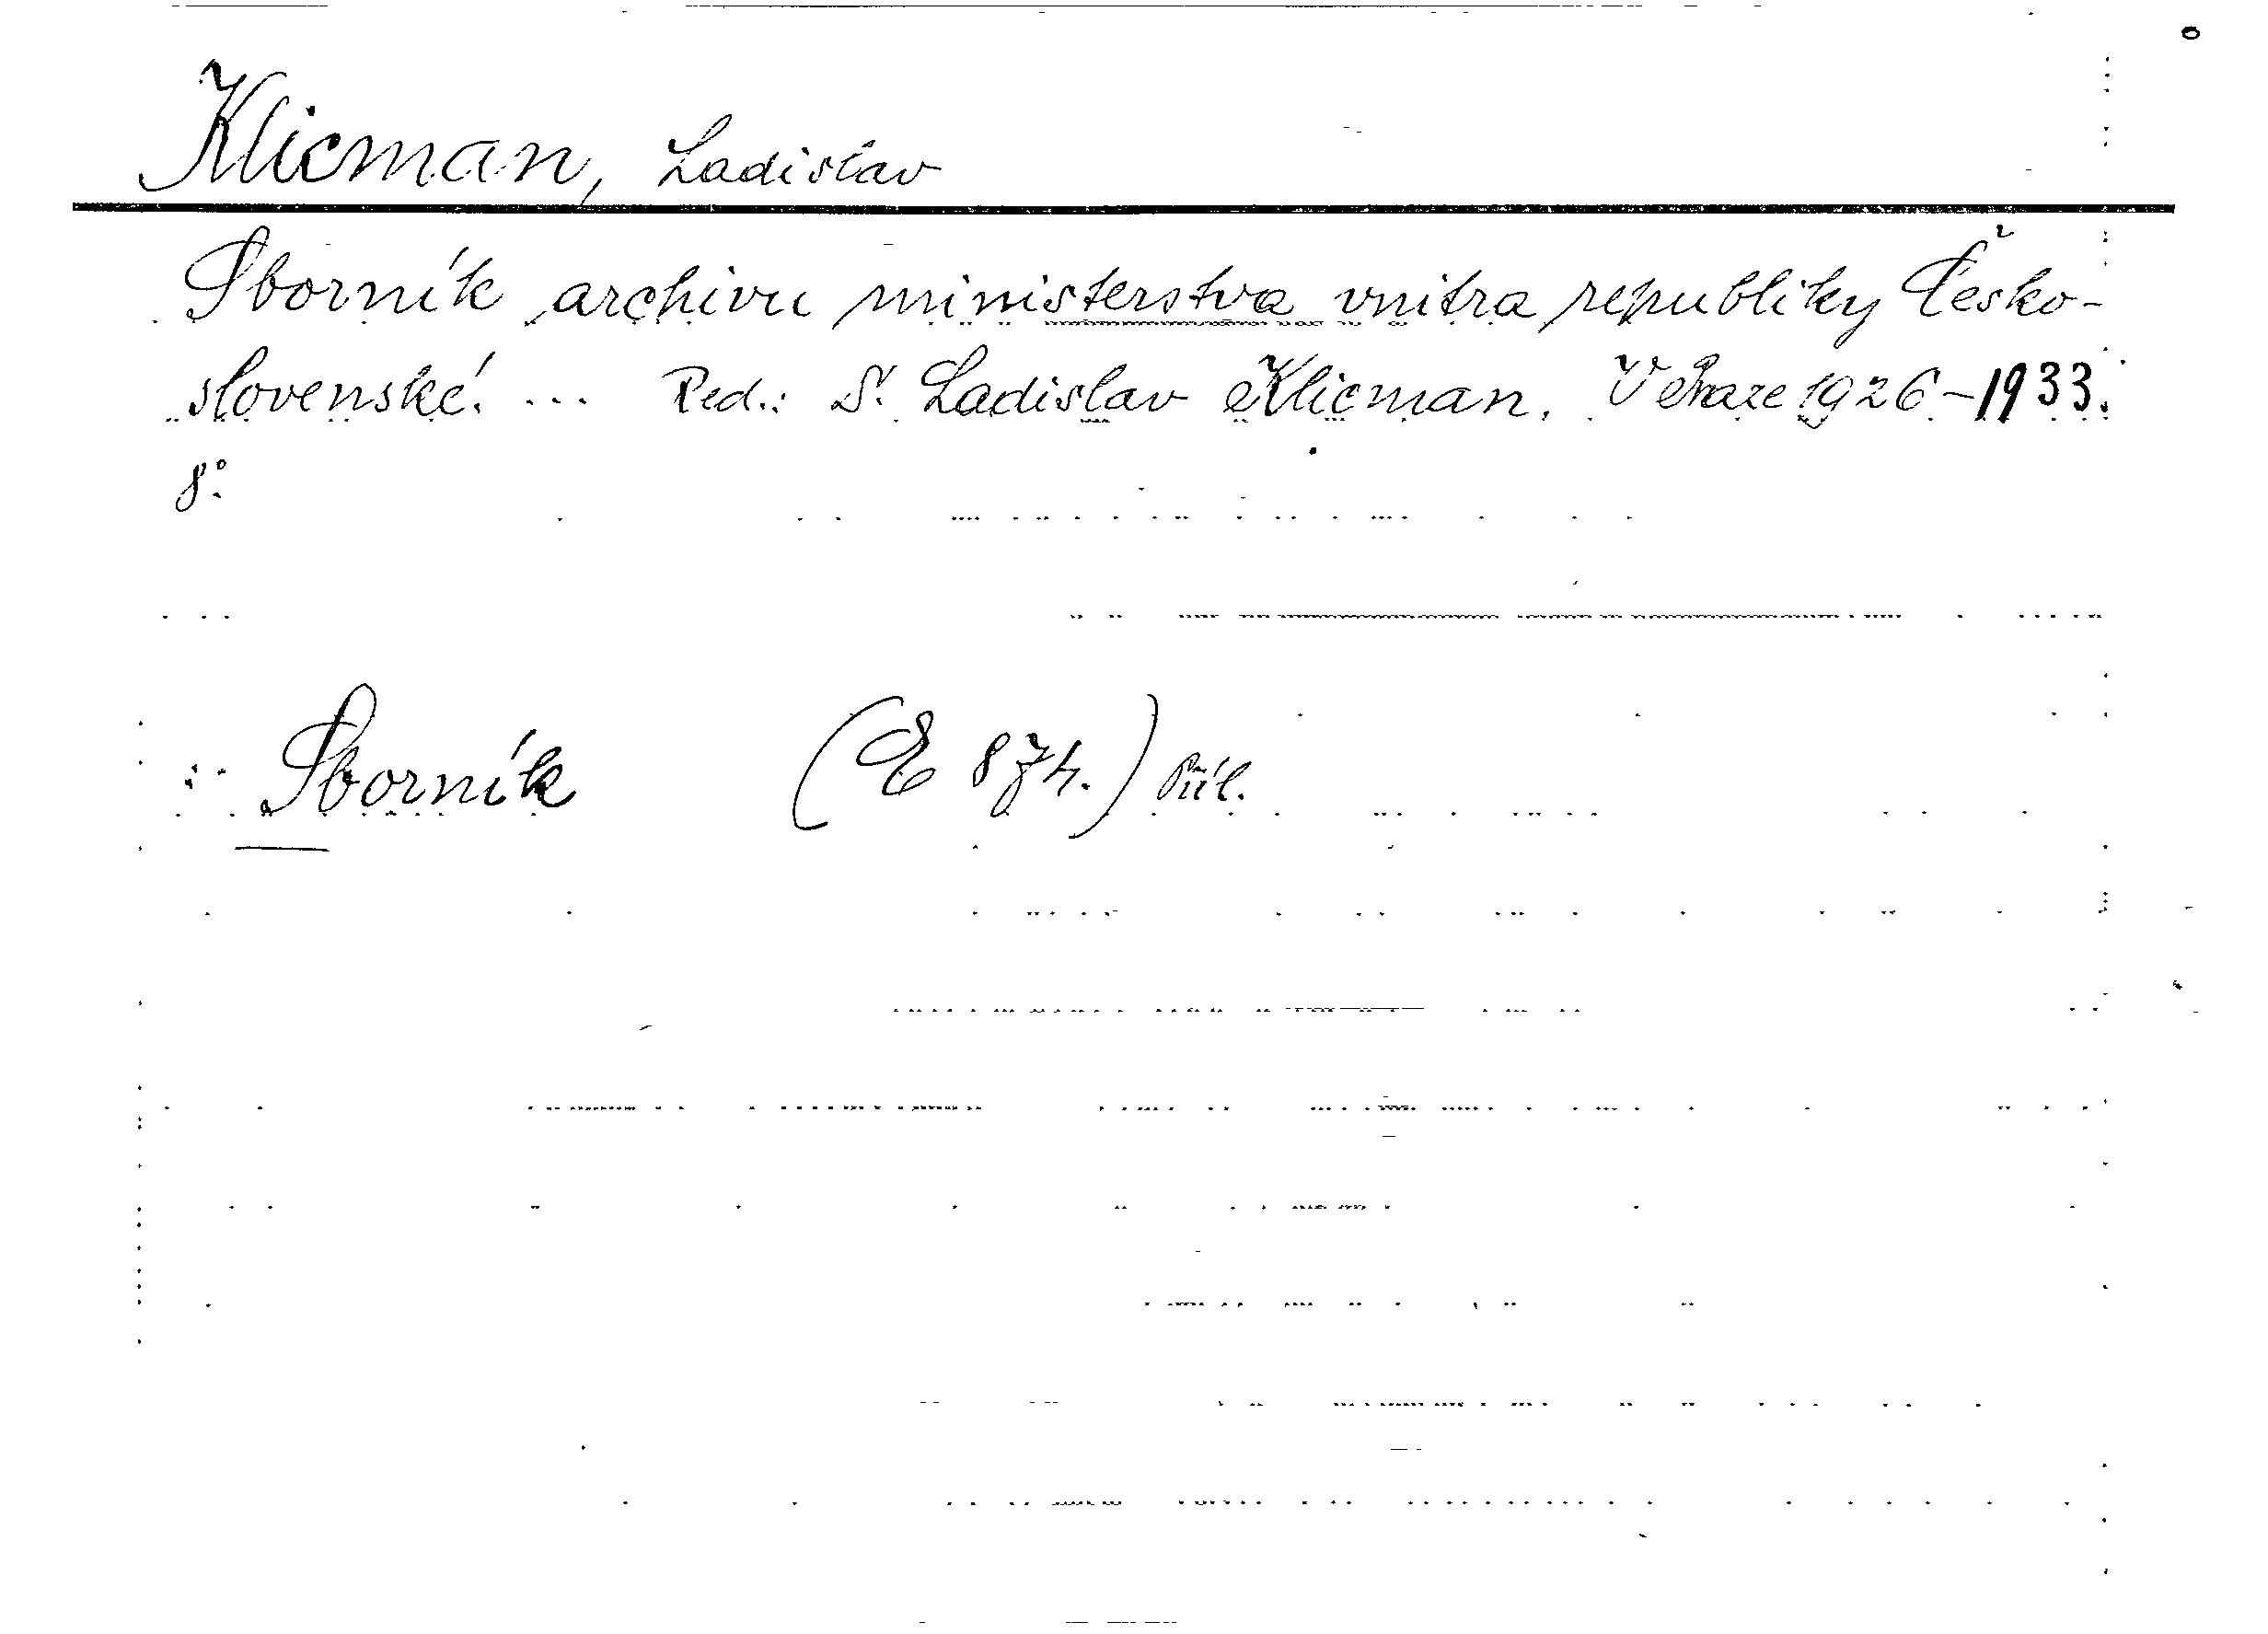 Klicman, Ladislav
Sborník archivu ministerstva vnitra republiky Česko-
slovenské. ... Red.: Dr. Ladislav Klicman. V Praze 1926-1933.
8°.
Sborník (E 874.)